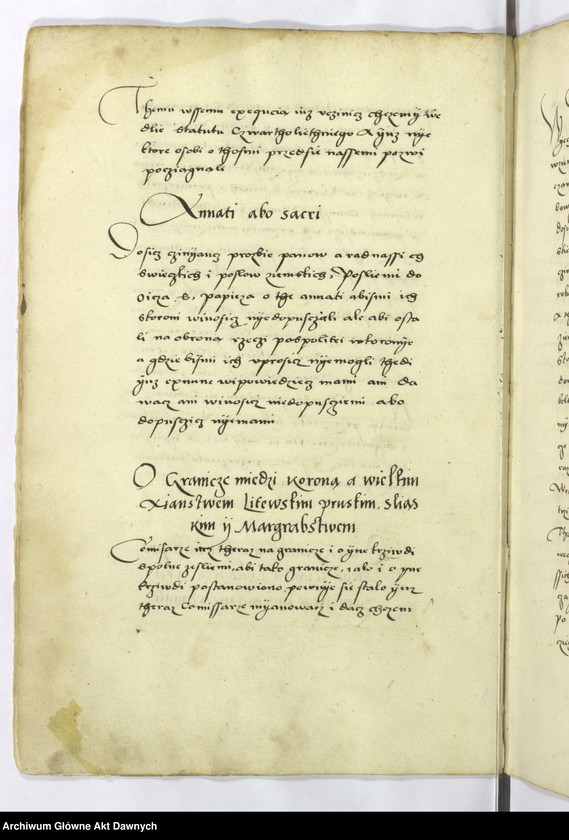 Themu wssemu exequcią iuz vczinicz chczemy we
dlie statutu Czwartholiethniego A ynz nye
ktore osobi o thosmi przedsie nassemi pozwi
pocziągnąli
Annati abo sacri
Dosicz czinyancz prozbie panow a rad nassich
swieczkich i poslow ziemskich, Posliemi do
Oicza S. papieza o the annati abismi ich
storoni winosicz nyedopusczali ale abi osta
li na obronę rzeczi pospolitei wtoronije
a gdzie bismi ich vprosicz nyemogli thedi
ynz exnunc wipowiedziecz mami ani da
wacz ani winosicz niedopusciemi abo
dopusczicz nyemami
O Granicze miedzi Koroną a wielkim
Xianstwem Litewskim pruskim, slias
kim ij Margrabstwem
Comisarze iuz theraz na granicze i o yne krziwdi
spolne zesliemi, abi tako granicze, iako i o yne
krziwdi postanowiono, pewnije sie stalo ynz
theraz Comissarze myanowacz i dacz chczemi
Archiwum Główne Akt Dawnych